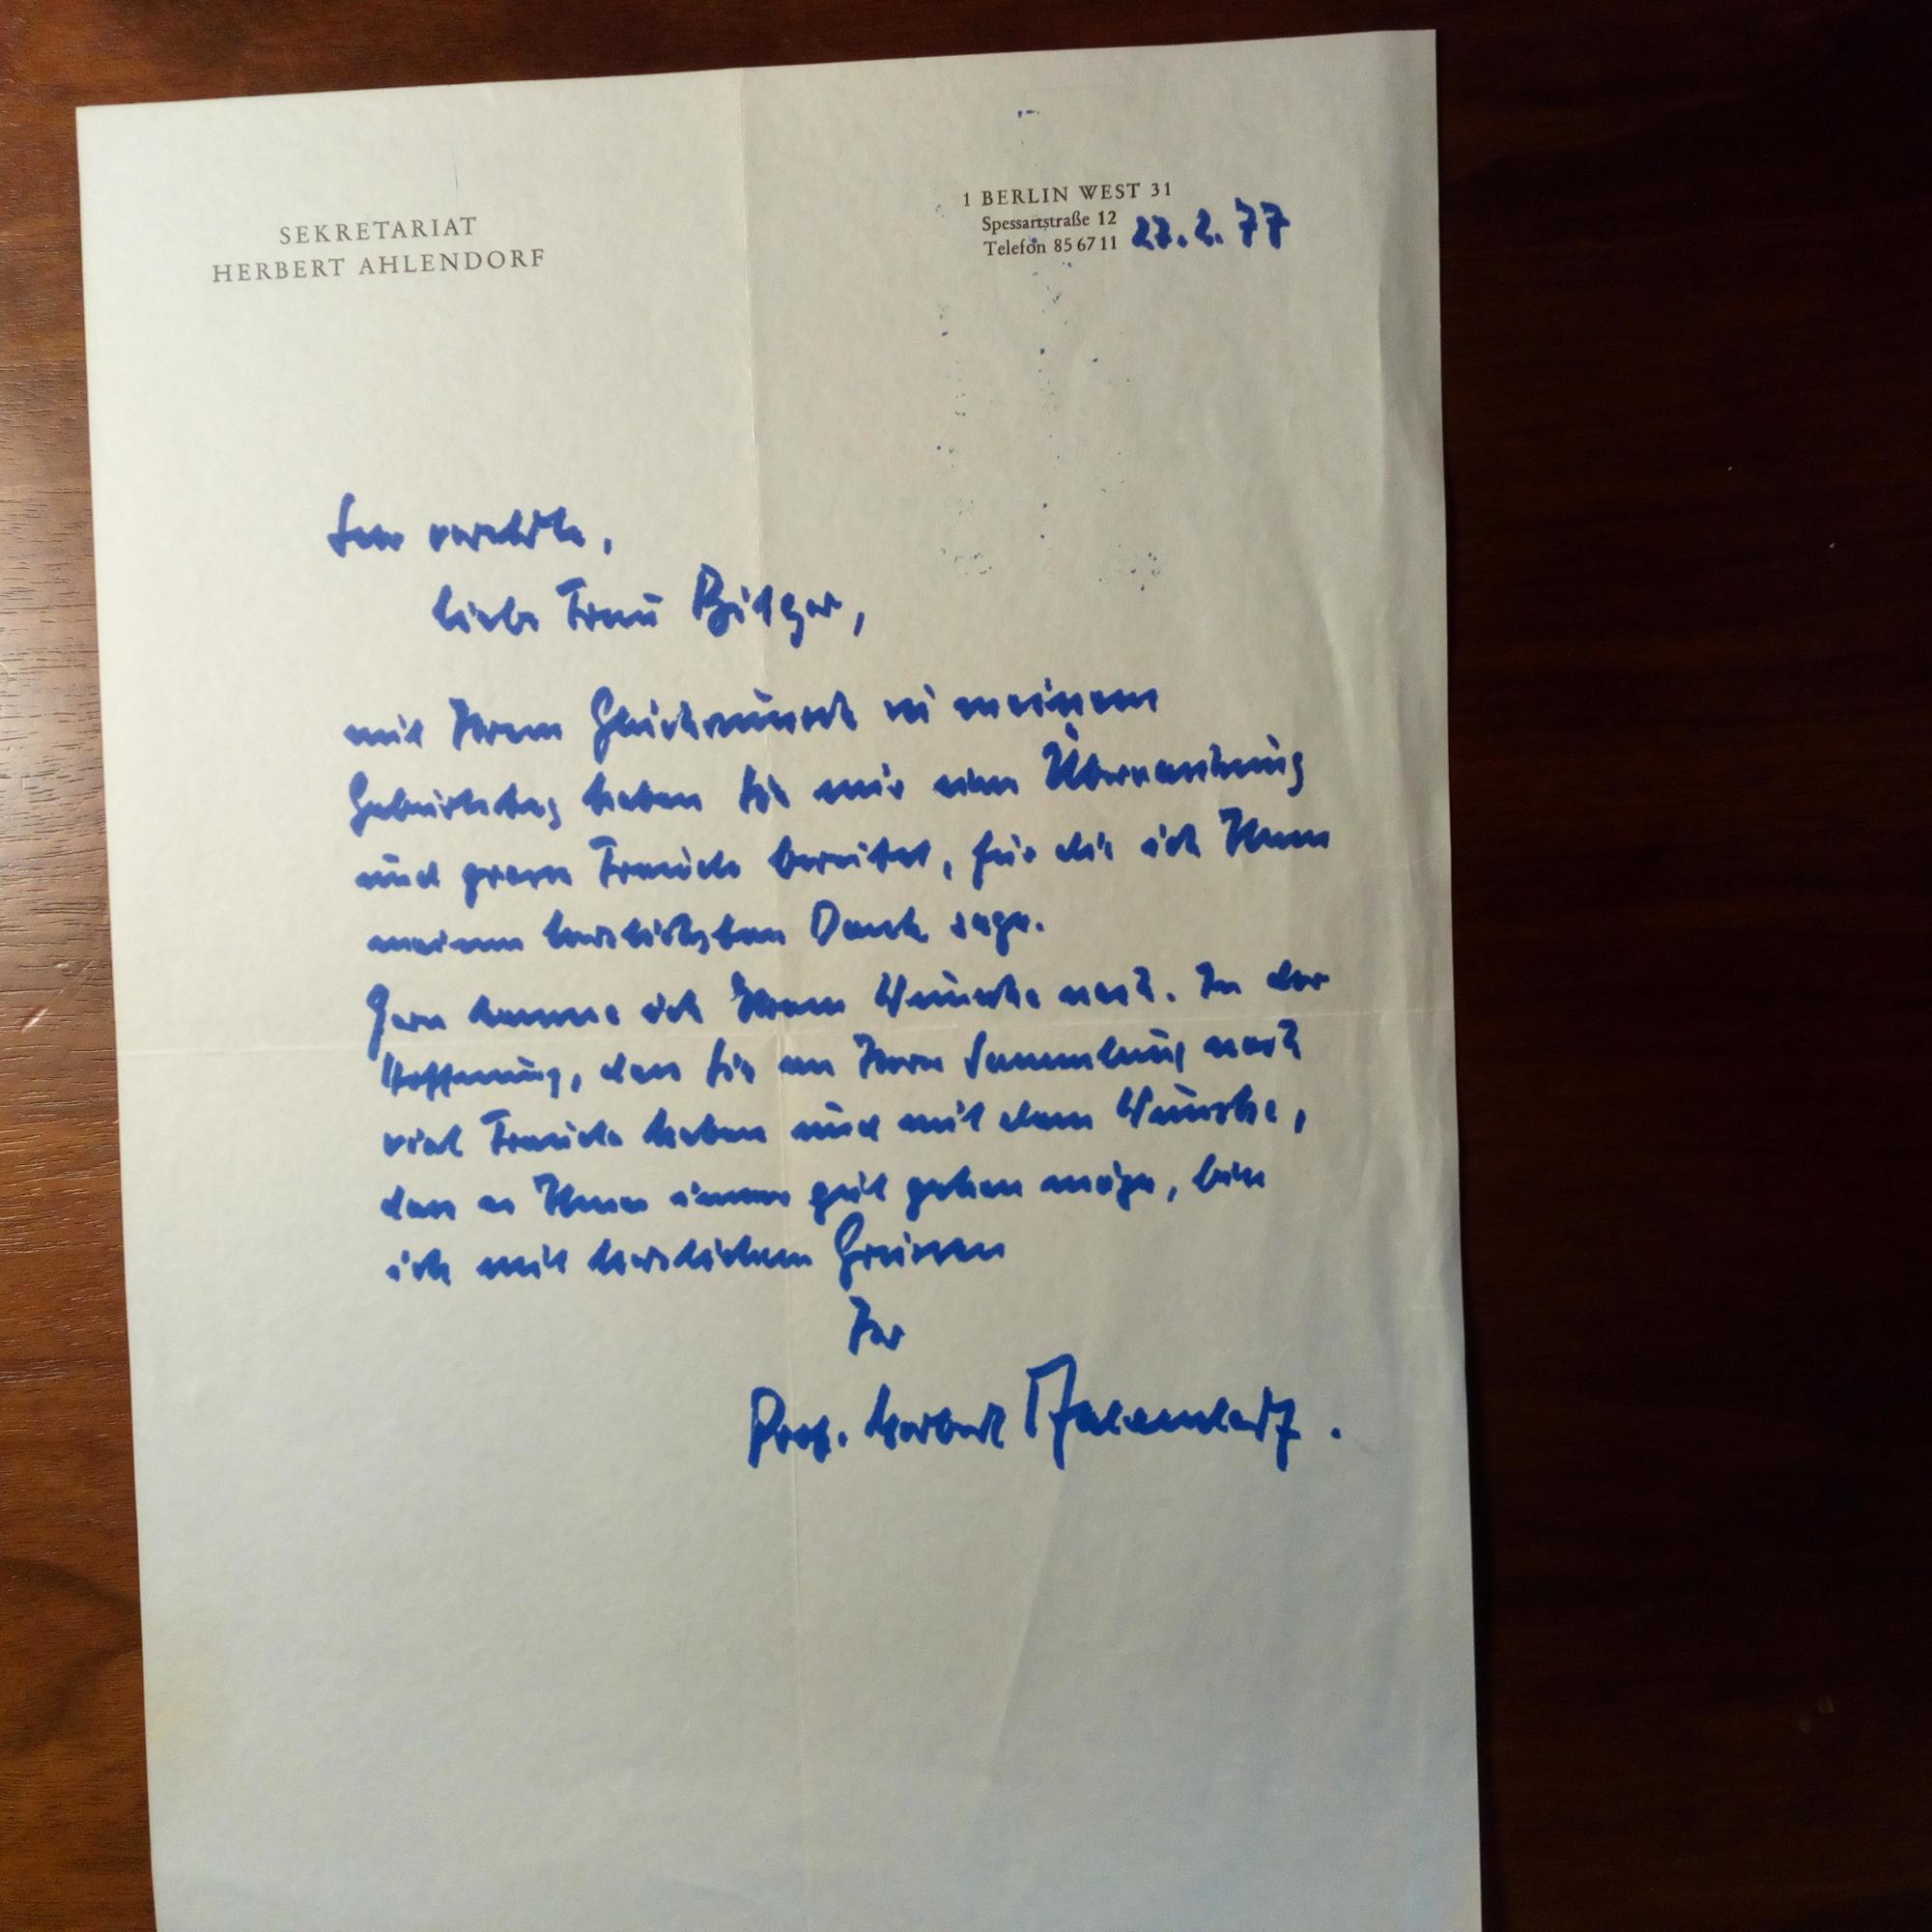 SEKRETARIAT
HERBERT AHLENDORF
1 BERLIN WEST 31
Spessartstraße 12
Telefon 85 67 11
27.2.77
Sehr verehrte,
liebe Frau Bilger,
mit Ihrem Glückwunsch zu meinem
Geburtstag haben Sie mir eine Überraschung
und grosse Freude bereitet, für die ich Ihnen
meinen herzlichsten Dank sage.
Gern komme ich Ihrem Wunsche nach. In der
Hoffnung, dass Sie an Ihrer Sammlung noch
viel Freude haben und mit dem Wunsche,
dass es Ihnen immer gut gehen möge, bin
ich mit herzlichen Grüssen
Ihr
Prof. Herbert Ahlendorf.